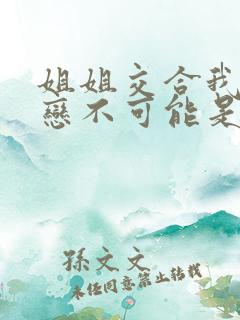 姐姐交合我
戀不可能是
孫文文
未任同意禁止转載